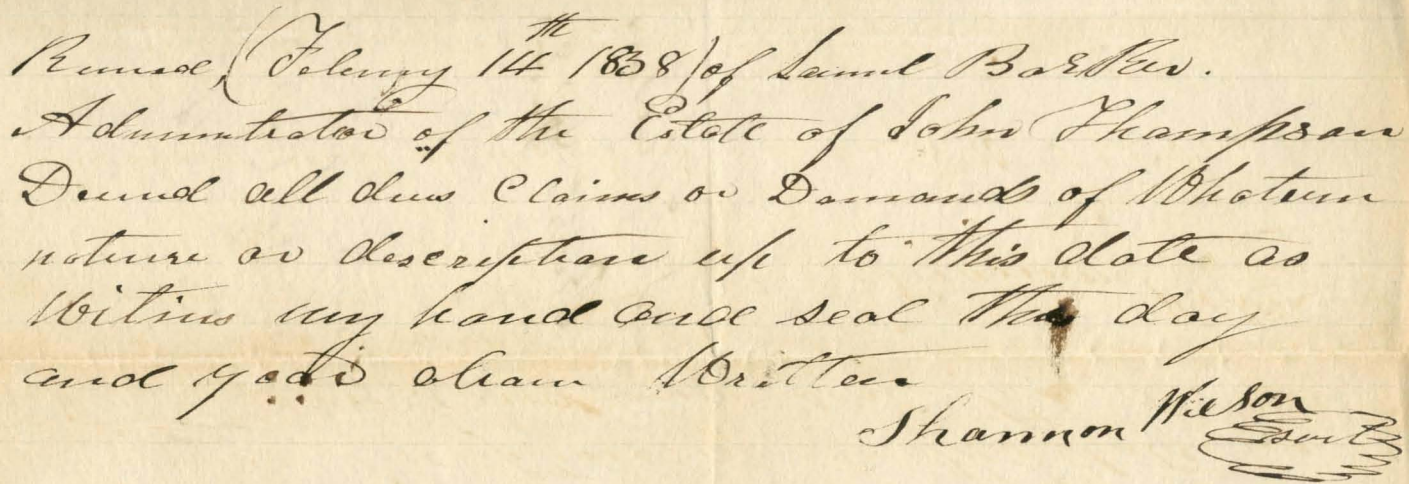 Received, (February 14th 1838) of Samuel Barker.
Administrator of the Estate of John Thompson
Deceased all dues Claims or Demands of Whatever
nature or description up to this date as
Witness my hand and seal the day
and year above Written
Shannon Wilson